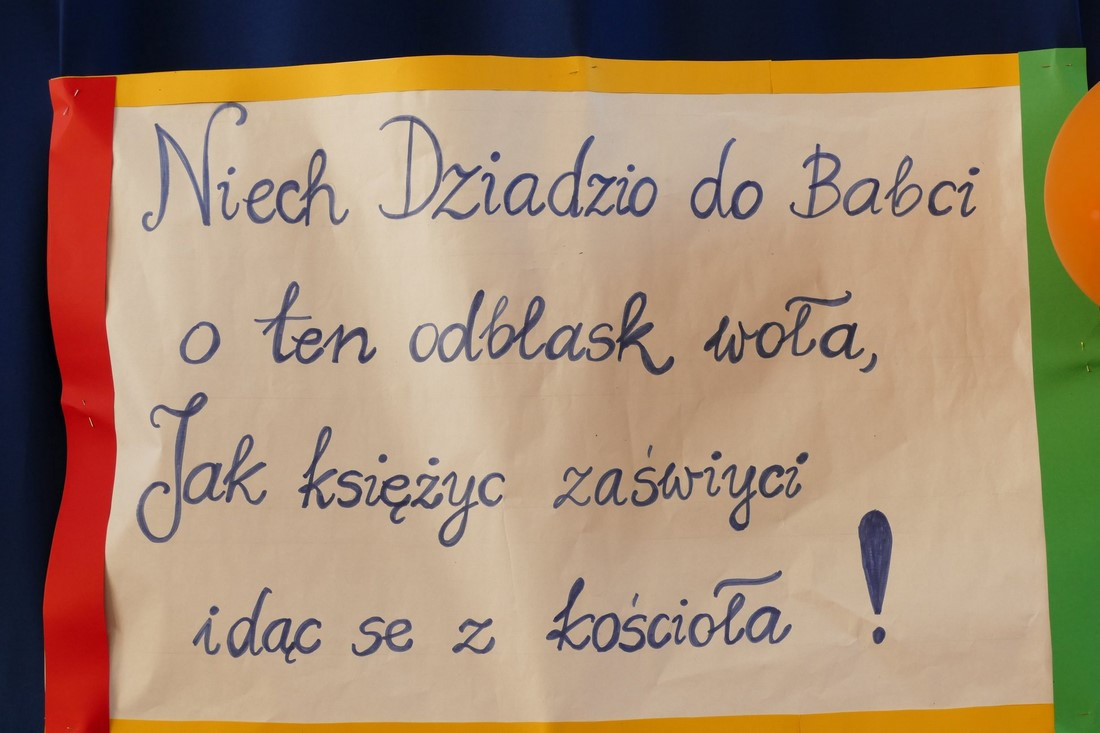 Niech Dziadzio do Babci
o ten odbłask woła,
Jak księżyc zaświyci
idąc se z kościoła!